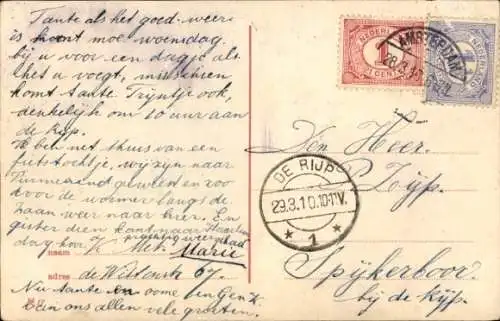 Tante als het goed weer
is komt moe woensdag
bij u voor een dagje als
het u voegt, misschien
komt tante Trijntje ook,
denkelijk om 10 uur aan
de Rijp.
Ik ben net thuis van een
fietstochtje, wij zijn naar
Purmerend geweest en zoo
door de wormer langs de
Zaan war naar hier. En
gister dien kant naar Haarlem
dag hoor. prachtig weer gehad
naam Marie
adres de Wittenk 67.
Nu tante en oome ben Gen K.
van ons allen vele groeten.
NEDERLAND
1
1 CENT
NEDERLAND
AMSTERDAM
28.3.1
DE RIJP
29.3.10.10-11V.
1
Den Heer.
Zijp.
Spijkerboor
bij de Rijp.